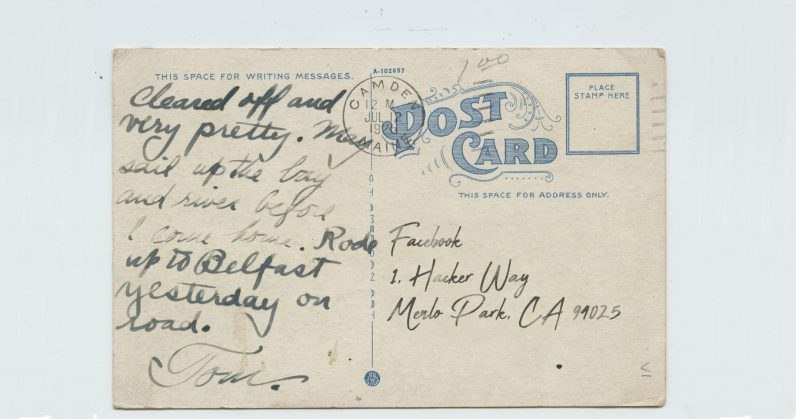 THIS SPACE FOR WRITING MESSAGES.
Cleared off and
very pretty. May
sail up the bay
and river before
I come home. Rode
up to Belfast
yesterday on
road.
Tom.
A-102857
CAMDEN
12 M
JUL 12
MAINE
1 00
POST
CARD
PLACE
STAMP HERE
THIS SPACE FOR ADDRESS ONLY.
Facebook
1, Hacker Way
Menlo Park, CA 94025